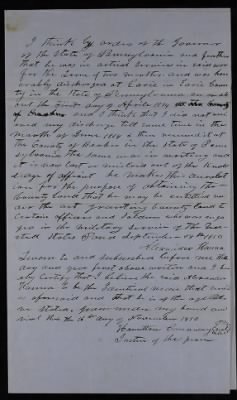 I think by orders of the Governor
of the State of Pennsylvania and further
that he was in actual service in said war
for the term of two months and was hon
orably discharged at Erie in Erie Coun
ty in the State of Pennsylvania on or ab
out the first day of April 1814
and I think that I was out on
my discharge at the same time in the
month of June 1814 & then received it at
the County of in the State of Penn
sylvania the same was in writing and
it is now lost or mislaid out of the Know
ledge of affiant he makes this
ion for the purpose of obtaining the
bounty land that he may be entitled un
der the act granting bounty land to
certain officers and soldiers who was enga
ged in the military service of the Uni
ted States Passed September 28th 1850
Alexander Hanna
Sworn to and subscribed before me the
day and year first above written and I he
by certify that I believe the said Alexander
Hanna to be the identical man that serv
as aforesaid and that he is of the age
stated, given under my hand and
seal this the day of November 1850
Hamilton
Justice of the peace